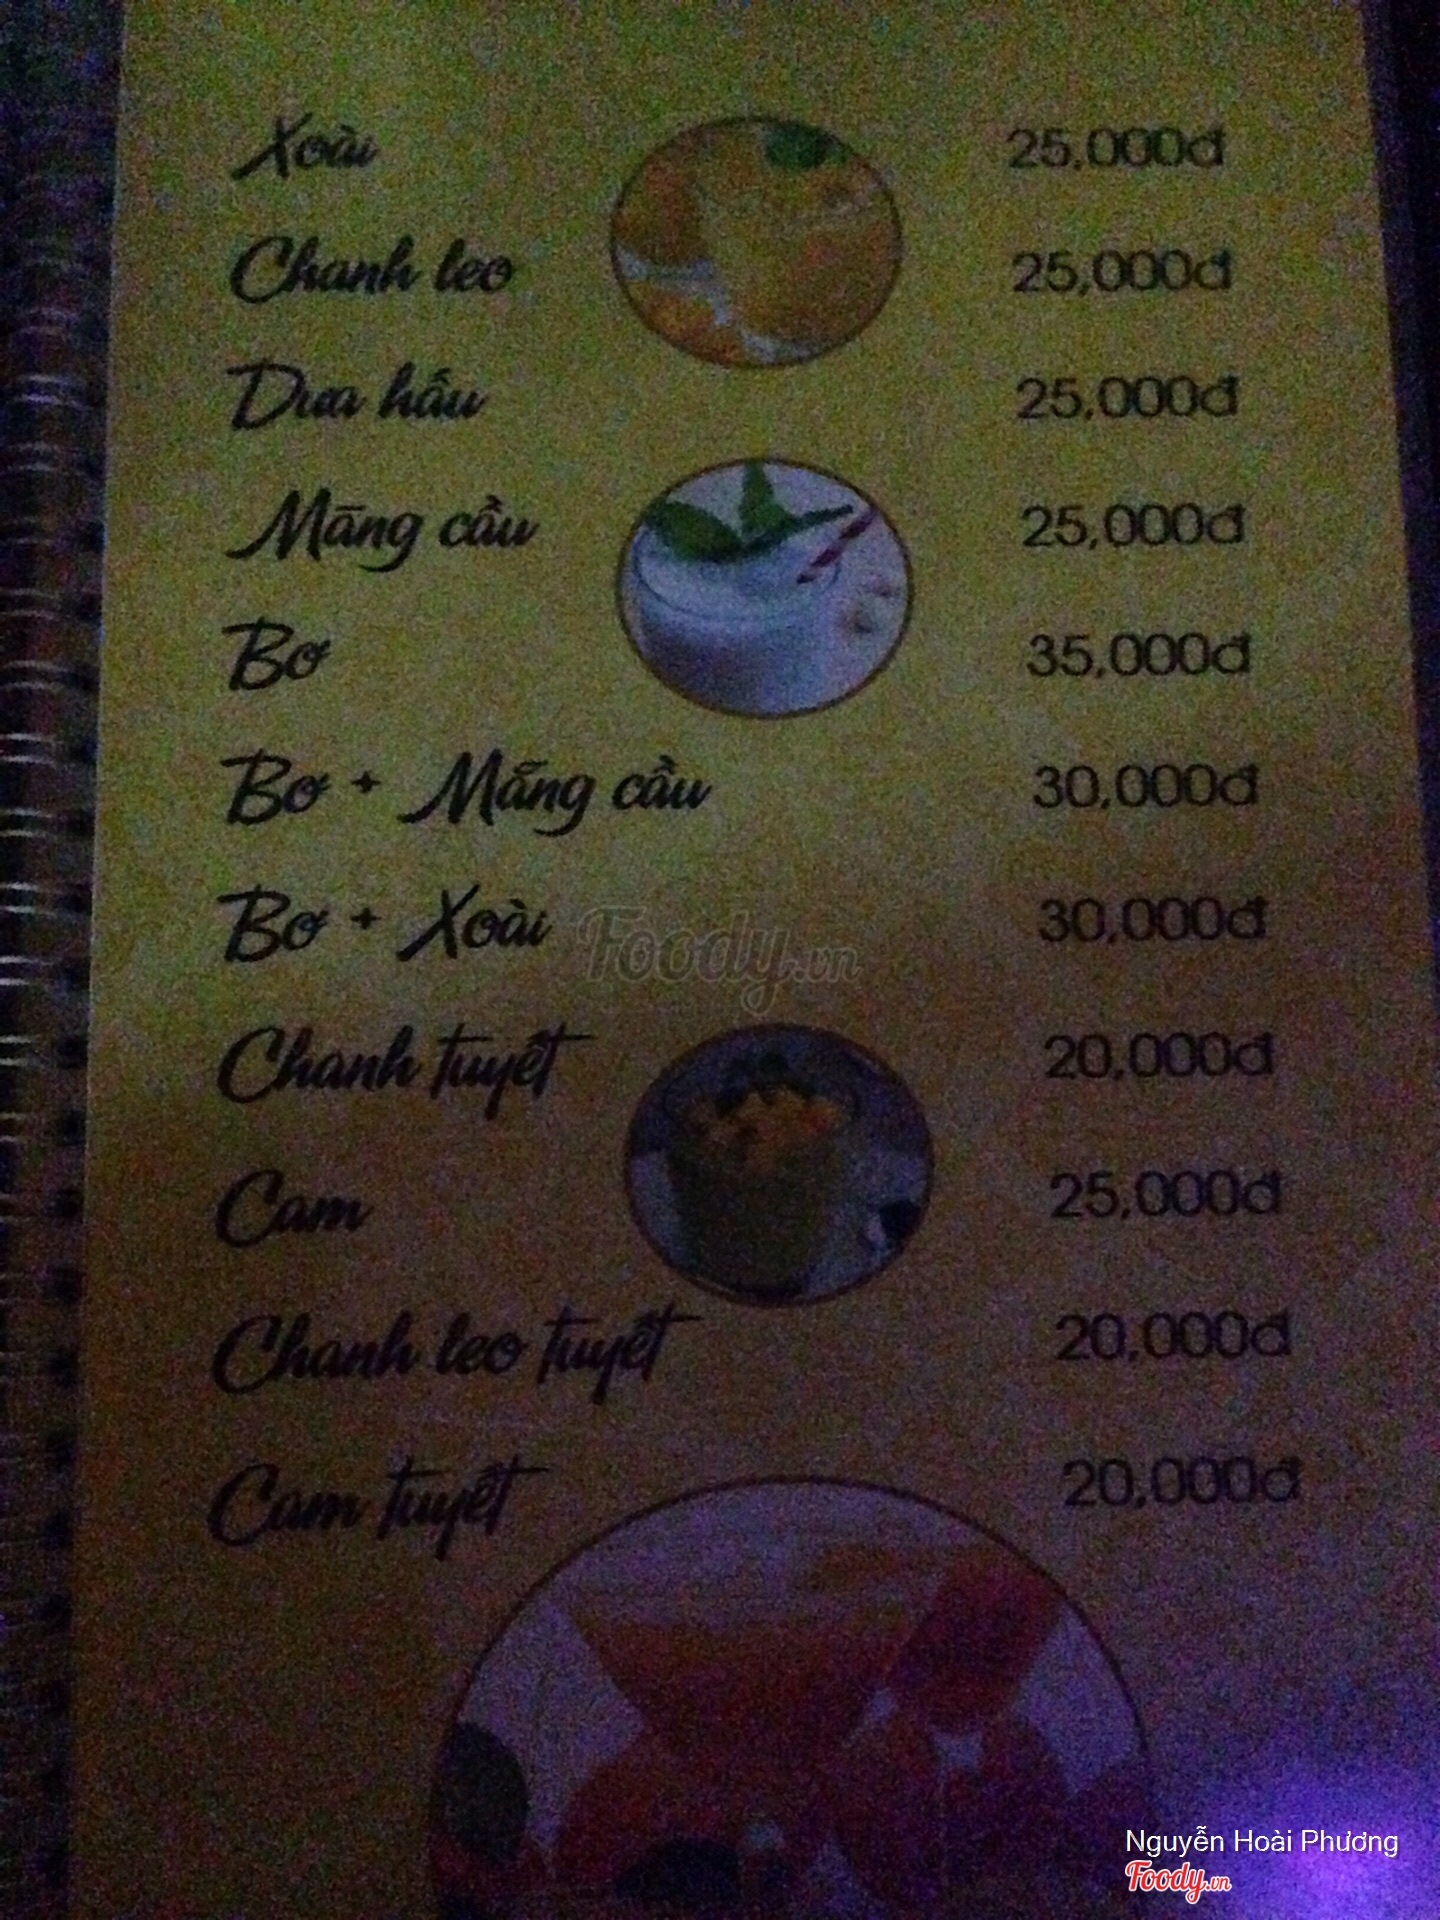 Xoài 25,000đ
Chanh leo 25,000đ
Dưa hấu 25,000đ
Mãng cầu 25,000đ
Bơ 35,000đ
Bơ + Mãng cầu 30,000đ
Bơ + Xoài 30,000đ
Foody.vn
Chanh tuyết 20,000đ
Cam 25,000đ
Chanh leo tuyết 20,000đ
Cam tuyết 20,000đ
Nguyễn Hoài Phương
Foody.vn